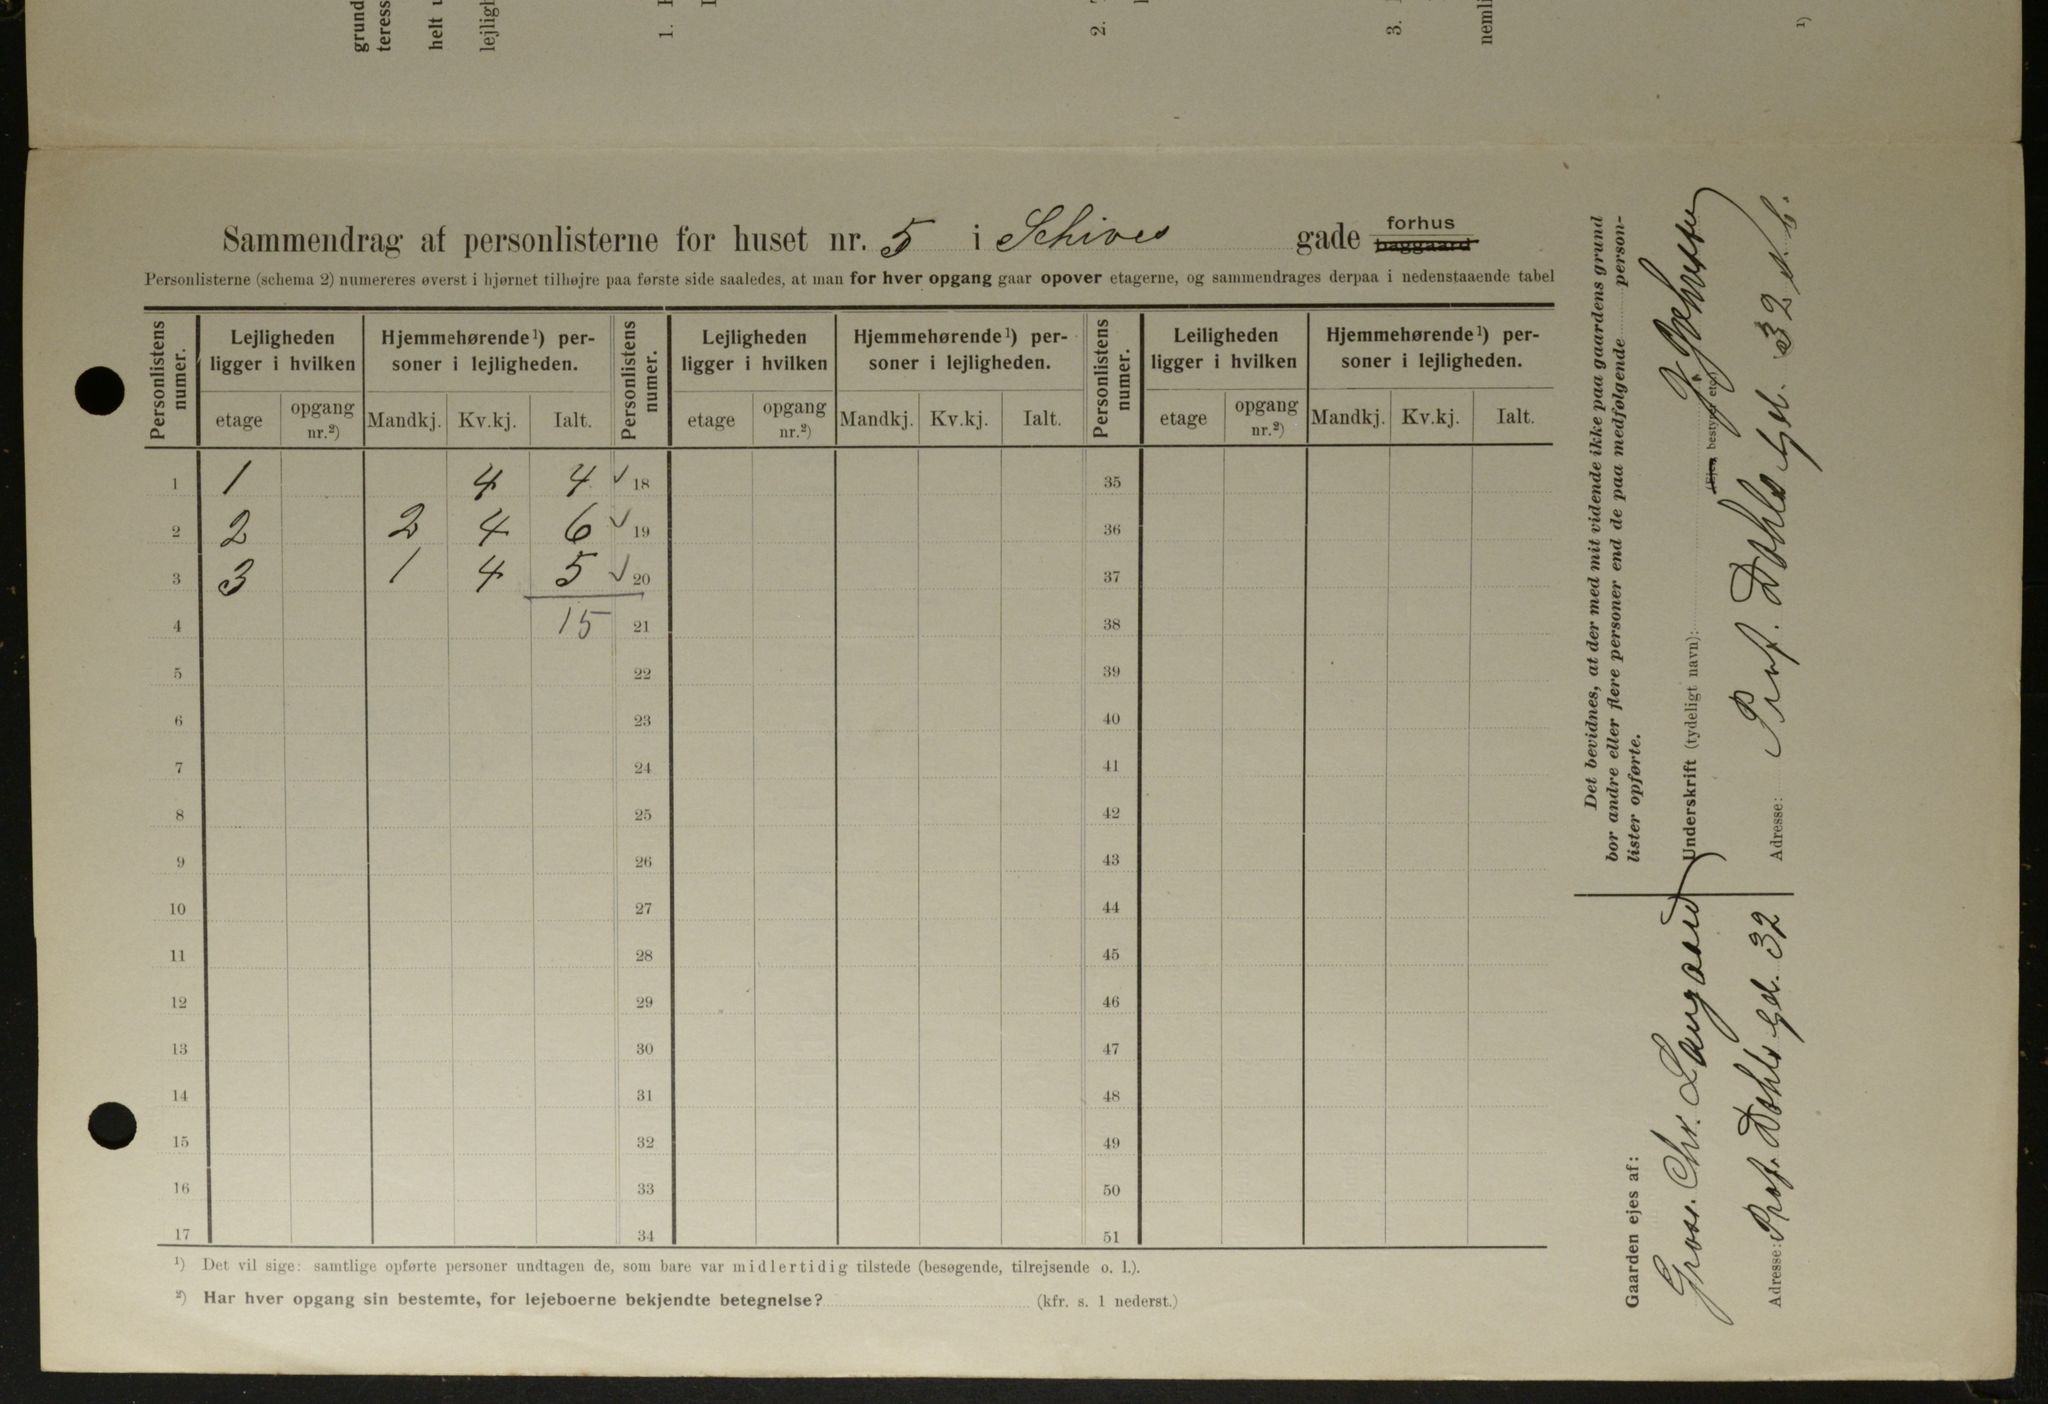 grund
teress
helt u
lejligh
1.
2.
3.
nemli
¹)
Sammendrag af personlisterne for huset nr. 5 i Schives gade forhus baggaard
Personlisterne (schema 2) numereres øverst i hjørnet tilhøjre paa første side saaledes, at man for hver opgang gaar opover etagerne, og sammendrages derpaa i nedenstaaende tabel
Personlistens numer. Lejligheden ligger i hvilken Hjemmehørende ¹) personer i lejligheden. Personlistens numer. Lejligheden ligger i hvilken Hjemmehørende ¹) personer i lejligheden. Personlistens numer. Leiligheden ligger i hvilken Hjemmehørende ¹) personer i lejligheden.
etage opgang nr.²) Mandkj. Kv.kj. Ialt. etage opgang nr.²) Mandkj. Kv.kj. Ialt. etage opgang nr.²) Mandkj. Kv.kj. Ialt.
1 1 4 4 ✓ 18 35
2 2 2 4 6 ✓ 19 36
3 3 1 4 5 ✓ 20 37
4 15 21 38
5 22 39
6 23 40
7 24 41
8 25 42
9 26 43
10 27 44
11 28 45
12 29 46
13 30 47
14 31 48
15 32 49
16 33 50
17 34 51
¹) Det vil sige: samtlige opførte personer undtagen de, som bare var midlertidig tilstede (besøgende, tilrejsende o. l.).
²) Har hver opgang sin bestemte, for lejeboerne bekjendte betegnelse? (kfr. s. 1 nederst.)
Det bevidnes, at der med mit vidende ikke paa gaardens grund
bor andre eller flere personer end de paa medfølgende person-
lister opførte.
Underskrift (tydeligt navn):
(Ejer, bestyrer etc.)
Adresse: Prof. Dahls Gd. 32
Gaarden ejes af:
Gross. Chr. Langaard
Adresse: Prof. Dahls Gd. 32